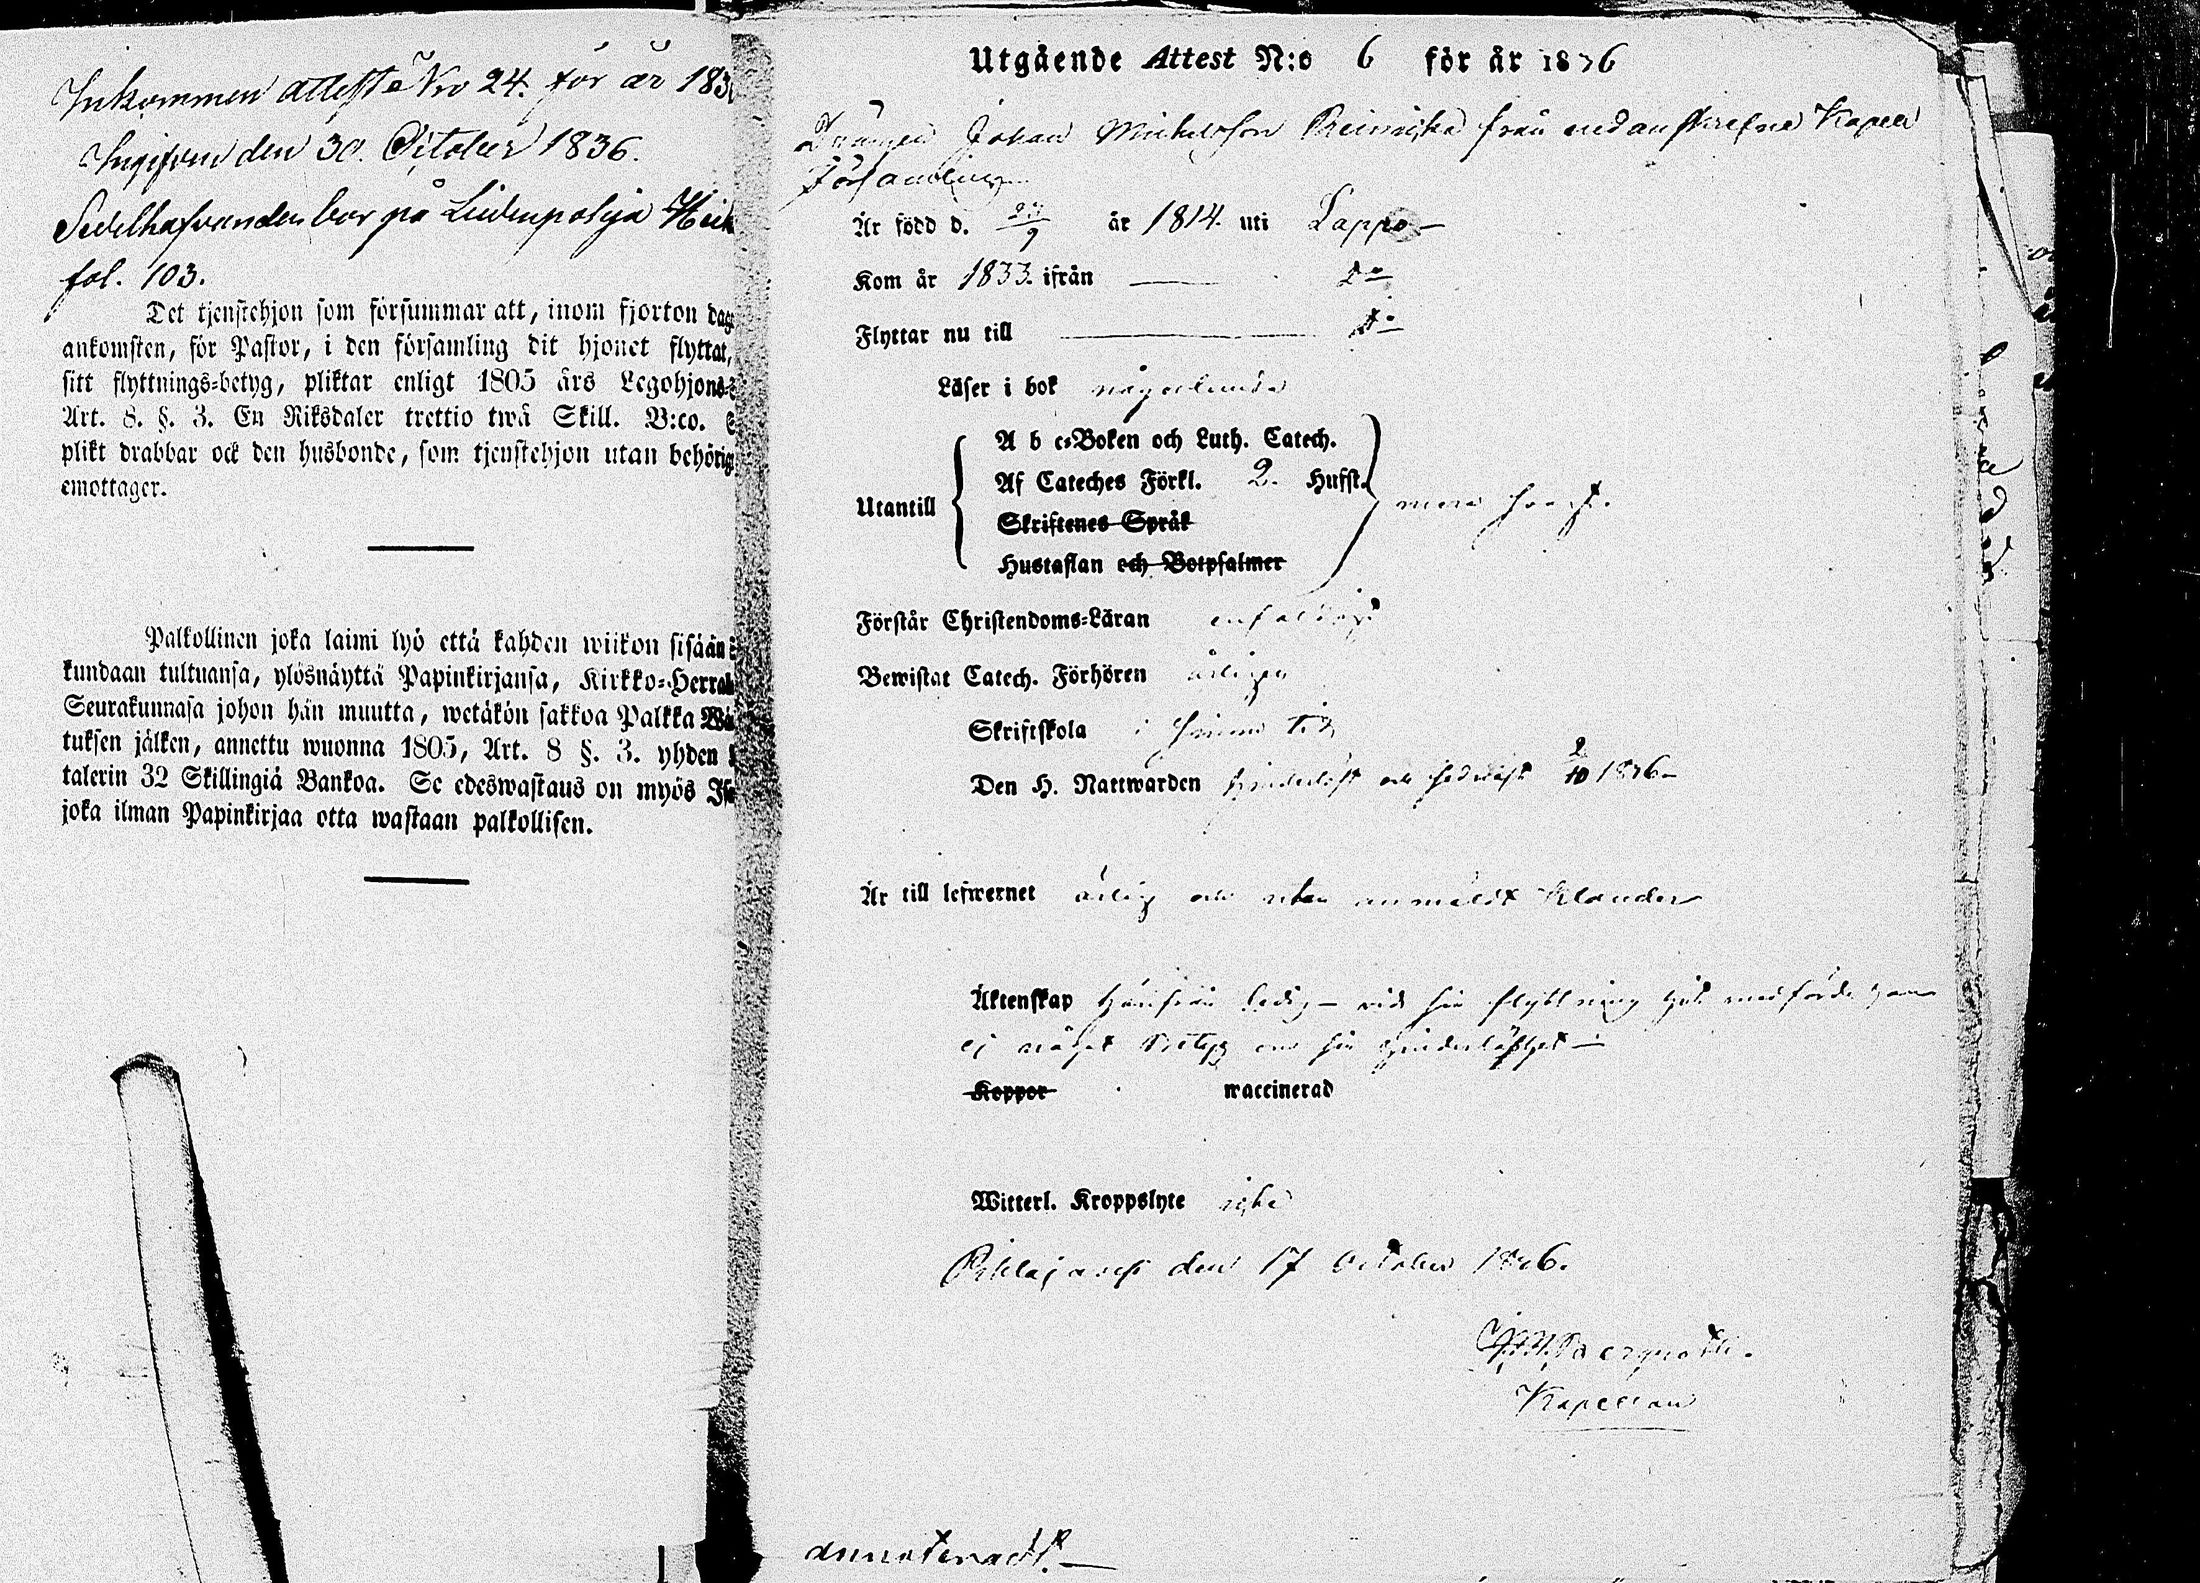 Inkommen attest Nro 24. för år 183
Ingifven den 30. October 1836.
Sedelhafvanden bor på Liuhupohja
fol. 103.
Det tjenstehjon som försummar att, inom fjorton dag
ankomsten, för Pastor, i den församling dit hjonet flyttat,
sitt flyttnings-betyg, pliktar enligt 1805 års Legohjons-
Art. 8. §. 3. En Riksdaler trettio twå Skill. B:co.
plikt drabbar ock den husbonde, som tjenstehjon utan behörig
emottager.
Palkollinen joka laimi lyö että kahden wiikon sisään
kundaan tultuansa, ylösnäyttä Papinkirjansa, Kirkko-Herra
Seurakunnasa johon hän muutta, wetäkön sakkoa Palkka Wä
tuksen jälken, annettu wuonna 1805, Art. 8 §. 3. yhden
talerin 32 Skillingiä Bankoa. Se edeswastaus on myös Is
joka ilman Papinkirjaa otta wastaan palkollisen.
Utgående Attest N:o 6 för år 1836
Drängen Johan Michelsson från nedanskrefne Kapell
Församling
Är född d. /9 år 1814. uti Lappo
Kom år 1833. ifrån do
Flyttar nu till do
Läser i bok någorlunda
A b c-Boken och Luth. Catech.
Af Cateches Förkl. 2. Hufst.
Utantill
Skriftenes Språk
Hustaflan och Botpsalmer
Förstår Christendoms-Läran enfaldigt
Bewistat Catech. Förhören årligen
Skriftskola i sinom tid
Den H. Nattwarden och sednast 2/10 1836
Är till lefwernet ärlig och utan anmäldt klander
Äktenskap härifrån ledig - vid sin flyttning hit medförde han
ej något betyg om sin hinderlöshet
Koppor waccinerad
Witterl. Kroppslyte icke
den 17 October 1836.
Kapellan
annoteradt.